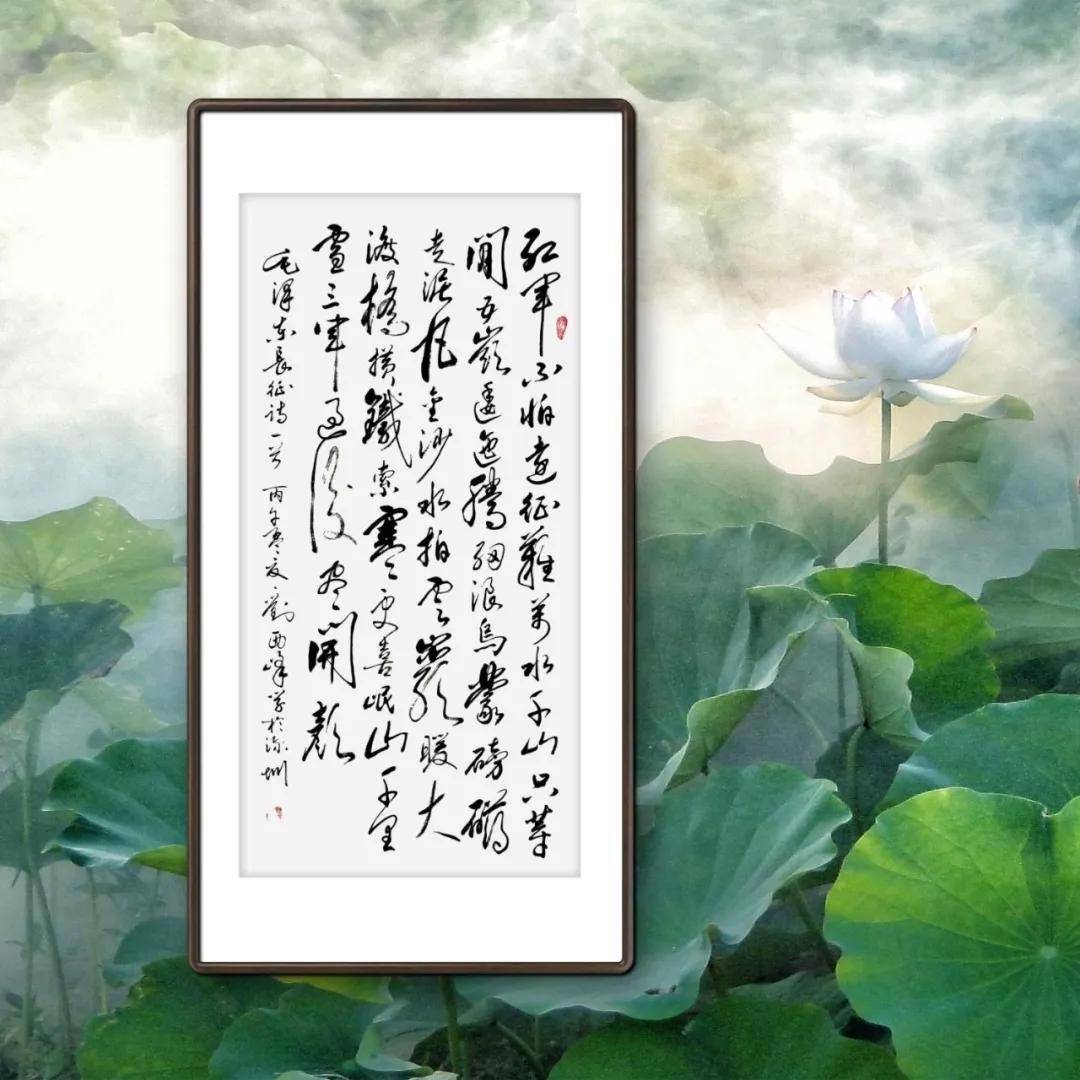 紅軍不怕遠征難萬水千山只等
閒五嶺逶迤騰細浪烏蒙磅礴
走泥丸金沙水拍雲巖暖大
渡橋橫鐵索寒更喜岷山千里
雪三軍過後盡開顏
毛澤東長征詩一首 丙午孟夏 劉西峰書於深圳